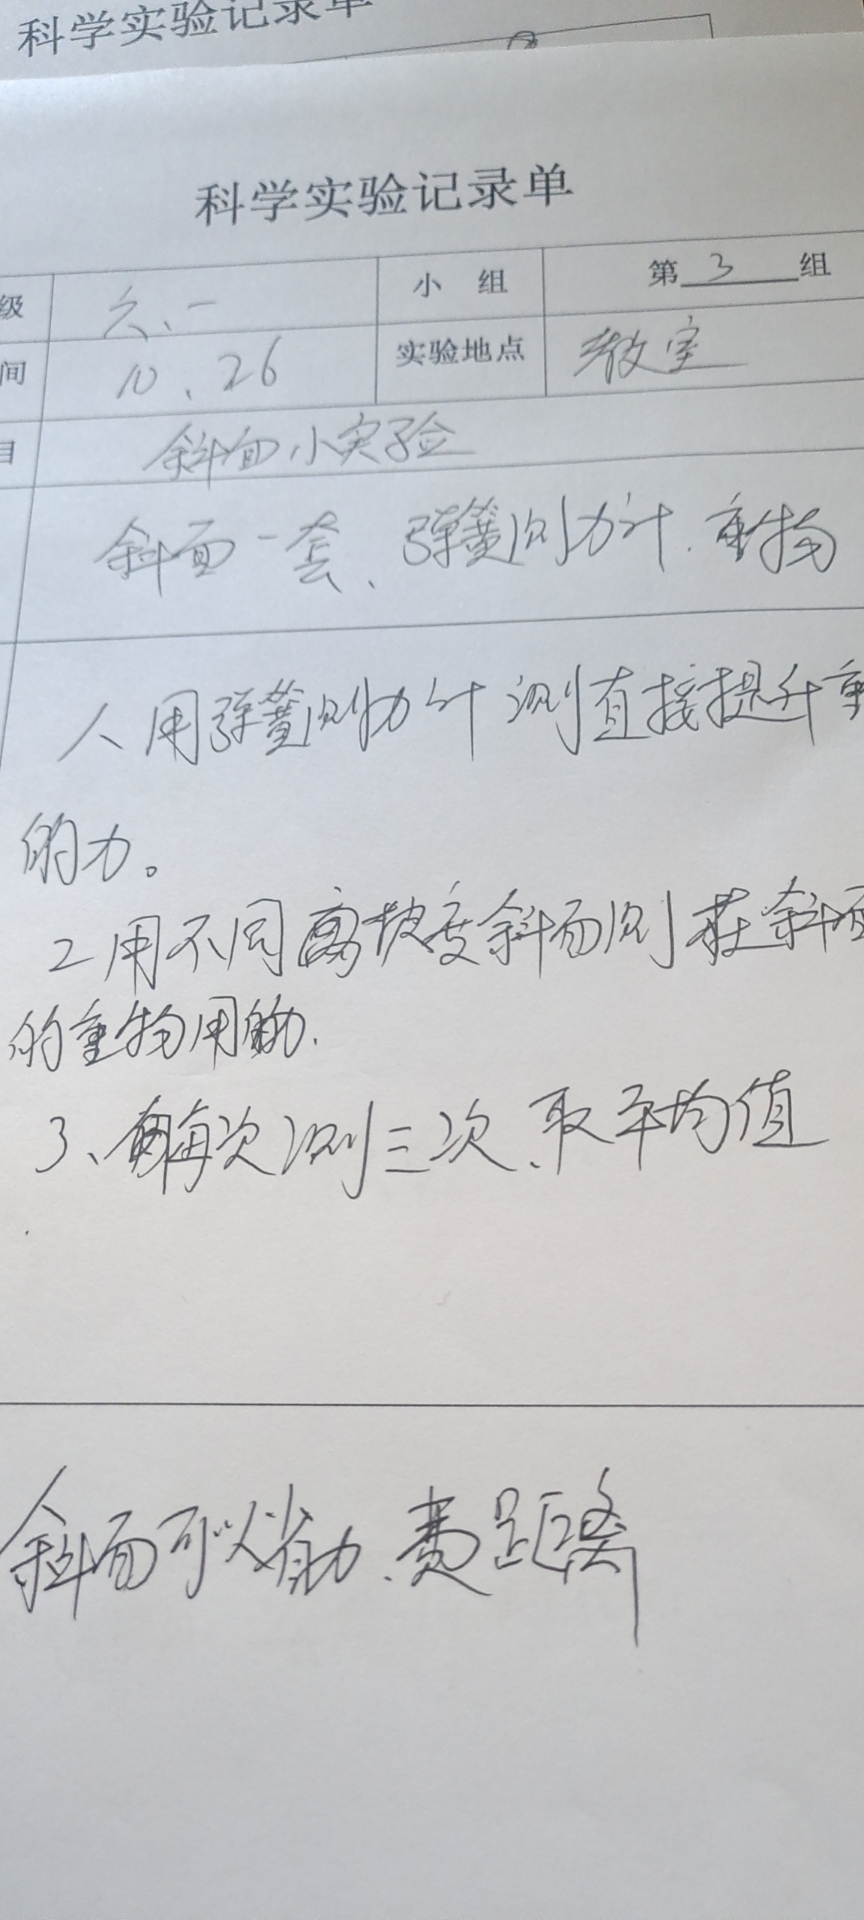 科学实验记录单
科学实验记录单
级 六、一 小 组 第 3 组
间 10、26 实验地点 教室
目 斜面小实验
斜面一套、弹簧测力计、重物
用弹簧测力计测直接提升重
的力。
2用不同高坡度斜面测在斜面
的重物用的力.
3、每次测三次、取平均值
斜面可以省力、费距离